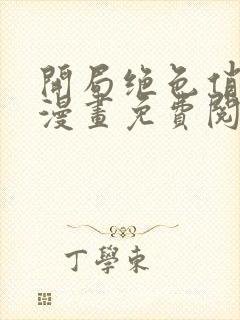 開局绝色俏
漫畫免費閱
丁學東